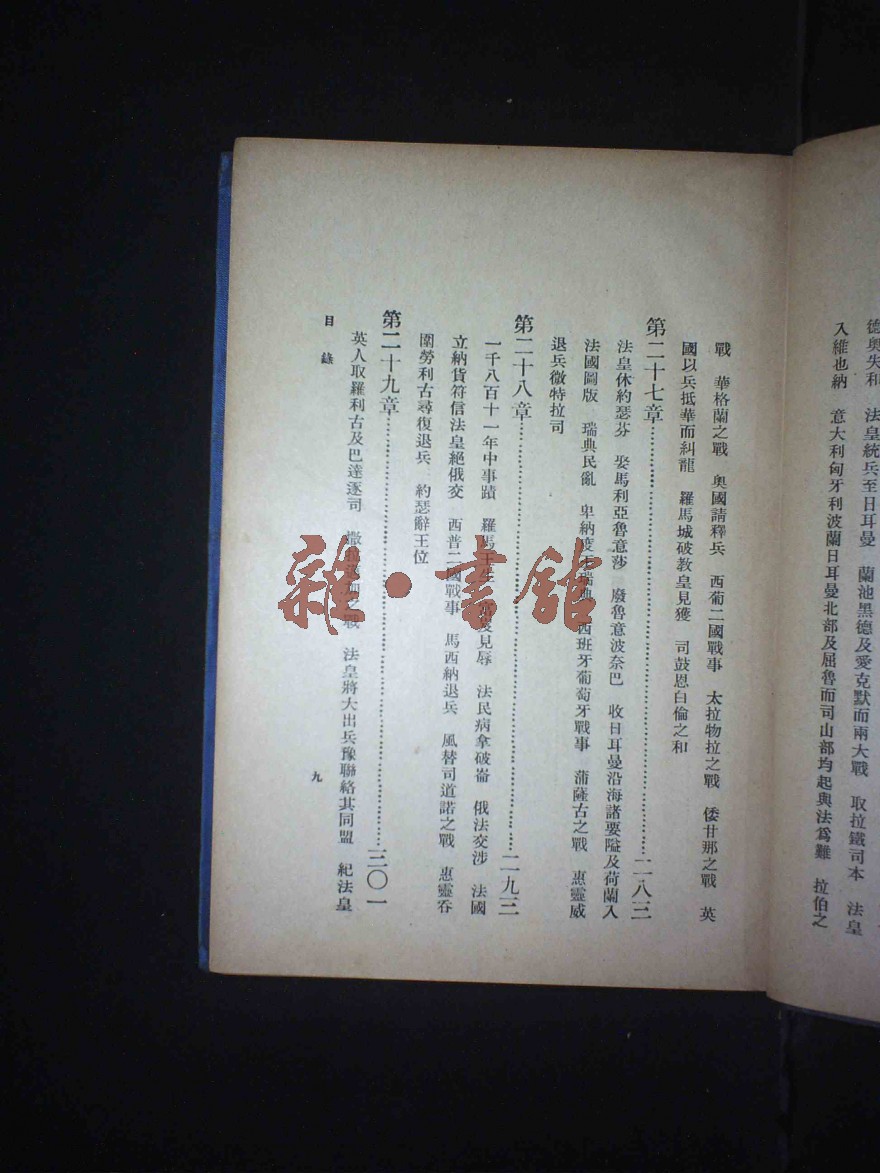 德奧失和 法皇統兵至日耳曼 蘭池黑德及愛克默而兩大戰 取拉鐵司本 法皇
入維也納 意大利匈牙利波蘭日耳曼北部及屈魯而司山部均起與法爲難 拉伯之
戰 華格蘭之戰 奧國請釋兵 西葡二國戰事 太拉物拉之戰 倭甘那之戰 英
國以兵抵華而糾龍 羅馬城破教皇見獲 司鼓恩白倫之和
第二十七章……二八三
法皇休約瑟芬 娶馬利亞魯意莎 廢魯意波奈巴 收日耳曼沿海諸要隘及荷蘭入
法國圖版 瑞典民亂 卑納 瑞典 西班牙葡萄牙戰事 蒲薩古之戰 惠靈威
退兵微特拉司
第二十八章……二九三
一千八百十一年中事蹟 羅馬王生 見辱 法民病拿破崙 俄法交涉 法國
立納貨符信法皇絕俄交 西普二國戰事 馬西納退兵 風替司道諾之戰 惠靈吞
圍勞利古尋復退兵 約瑟辭王位
第二十九章……三〇一
英人取羅利古及巴達逐司 撒 之戰 法皇將大出兵豫聯絡其同盟 紀法皇
目錄
九
雜·書館